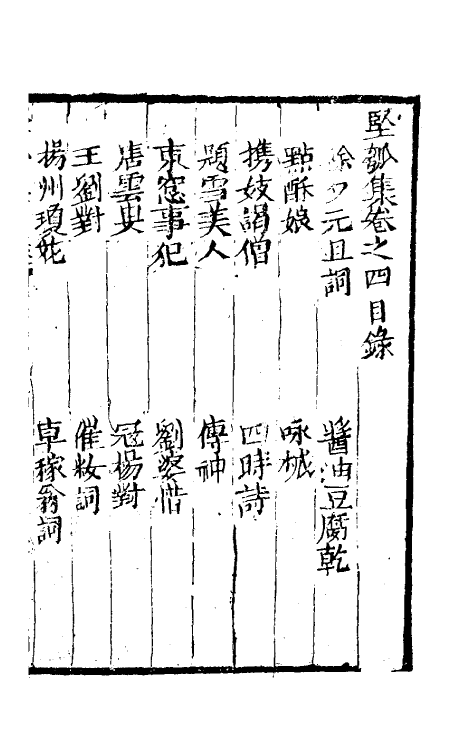 堅瓠集卷之四目錄
除夕元旦詞　醬油豆腐乾
點酥娘　咏棋
携妓謁僧　四時詩
題雪美人　傳神
東窓事犯　劉婆惜
唐雲叟　冦楊對
王劉對　催粧詞
揚州瓊花　卓稼翁詞